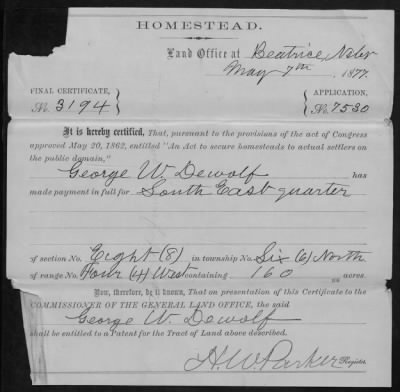 HOMESTEAD.
Land Office at Beatrice, Nebr
May 7th, 1877.
FINAL CERTIFICATE, APPLICATION,
No. 3194 No. 7530
It is hereby certified, That, pursuant to the provisions of the act of Congress
approved May 20, 1862, entitled "An Act to secure homesteads to actual settlers on
the public domain,"
George W. Dewolf has
made payment in full for South East quarter
of section No. Eight (8) in township No. Six (6) North
of range No. Four (4) West containing 160 acres.
Now, therefore, be it known, That on presentation of this Certificate to the
COMMISSIONER OF THE GENERAL LAND OFFICE, the said
George W. Dewolf
shall be entitled to a Patent for the Tract of Land above described.
H. W. Parker Register.